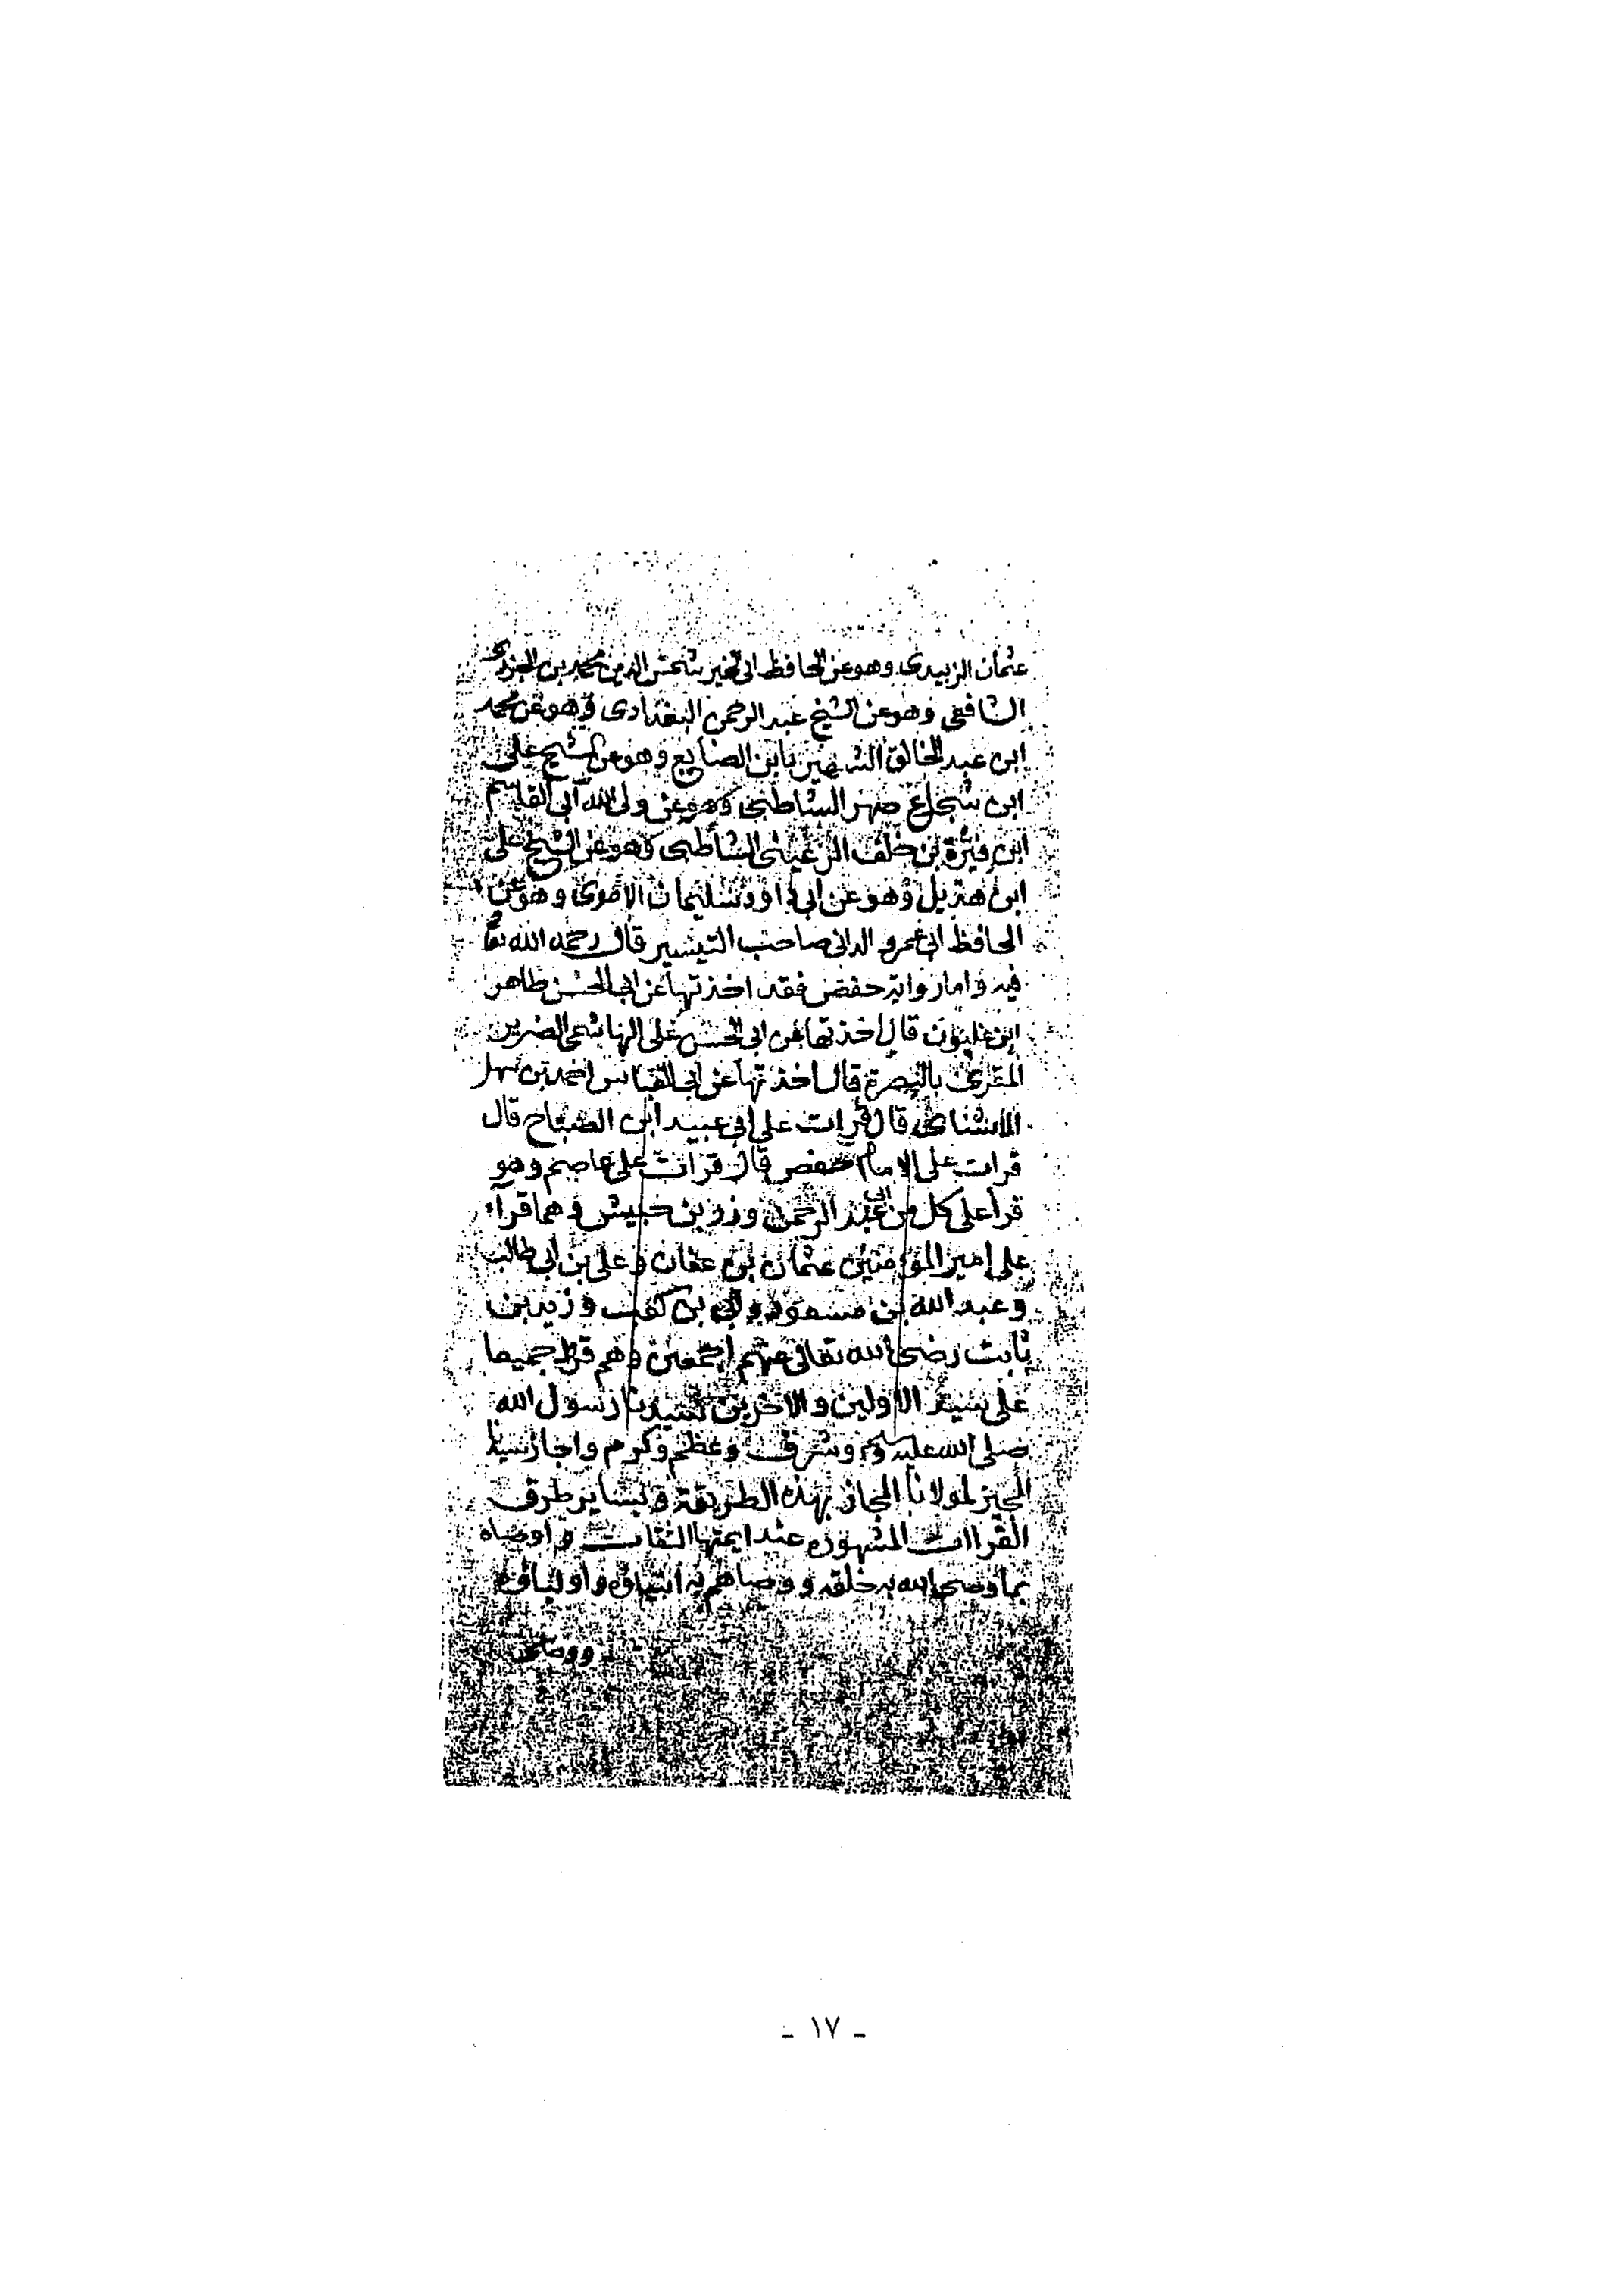 عثمان الزبيدى وهو عن الحافظ ابى الخير شمس الدين محمد بن الجزرى
الشافعى وهو عن الشيخ عبد الرحمن البغدادى وهو عن محمد
ابن عبد الخالق الشهير بابن الصايغ وهو عن الشيخ على
ابن شجاع صهر الشاطبى وهو عن ولى الله ابى القاسم
ابن فيرة بن خلف الرعينى الشاطبى وهو عن الشيخ على
ابن هذيل وهو عن ابى داود سليمان الاموى وهو عن
الحافظ ابى عمرو الدانى صاحب التيسير قال رحمه الله تعا
فيه واما رواية حفص فقد اخذتها عن ابى الحسن طاهر
ابن غلبون قال اخذتها عن ابى الحسن على الهاشمى الضرير
المقرئ بالبصرة قال اخذتها عن ابى العباس احمد بن سهل
الاشنانى قال قرات على ابى عبيد ابن الصباح قال
قرات على الامام حفص قال قرات على عاصم وهو
قرا على كل من ابى عبد الرحمن وزر بن حبيش وهما قرآ
على امير المؤمنين عثمان بن عفان وعلى بن ابى طالب
وعبد الله بن مسعود وابى بن كعب وزيد بن
ثابت رضى الله تعالى عنهم اجمعين وهم قرؤا جميعا
على سيد الاولين والاخرين سيدنا رسول الله
صلى الله عليه وسلم وشرف وعظم وكرم واجاز سيدنا
المجيز لمولانا المجاز بهذه الطريقة وبساير طرق
القراات المشهوره عند ايمتها الثقات واوصاه
بما وصى الله به خلقه ووصاهم به انبياؤه واولياؤه
- ١٧ -